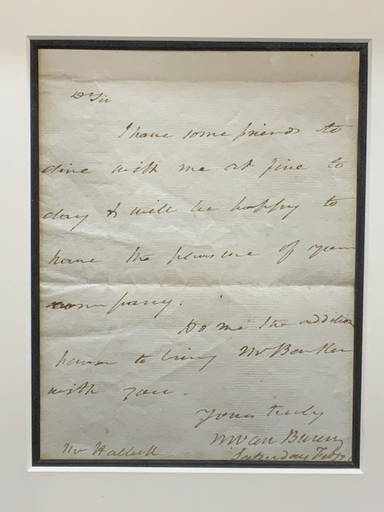 Dr Sir
I have some friends to
dine with me at five to
day & will be happy to
have the pleasure of your
company.
Do me the addition
honor to bring Mr
with you.
Yours truly
MVan Buren
Mr Halleck
Saturday Feb